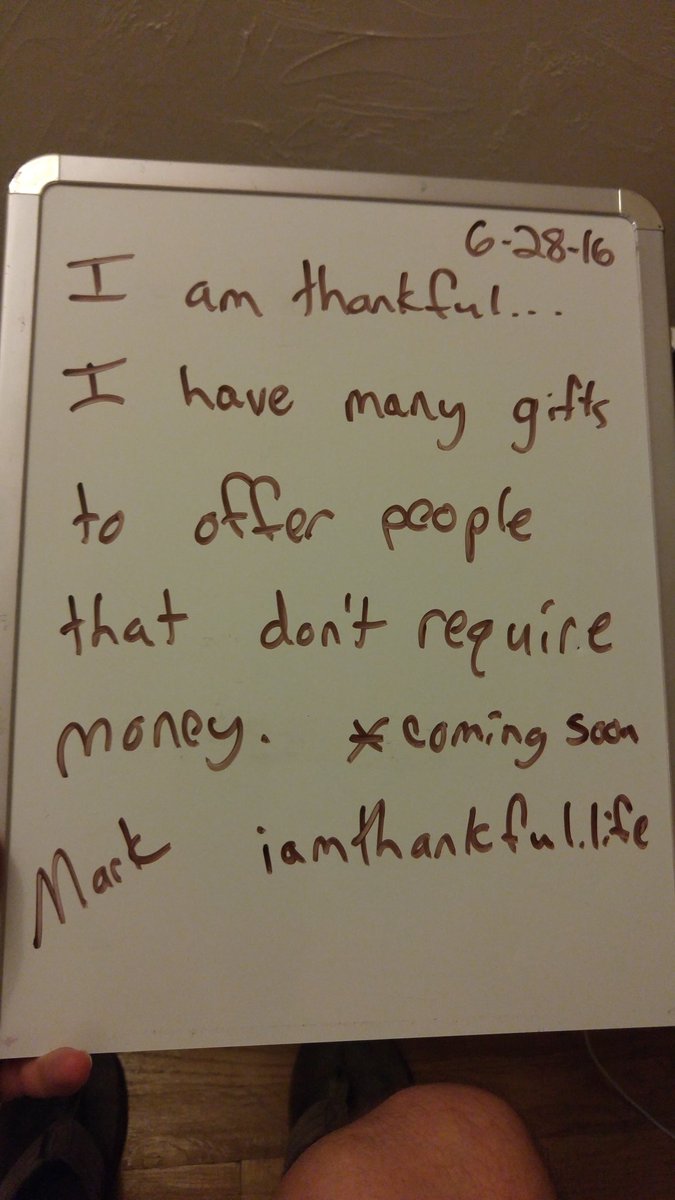 6-28-16
I am thankful...
I have many gifts
to offer people
that don't require
money. *coming soon
Mark iamthankful.life